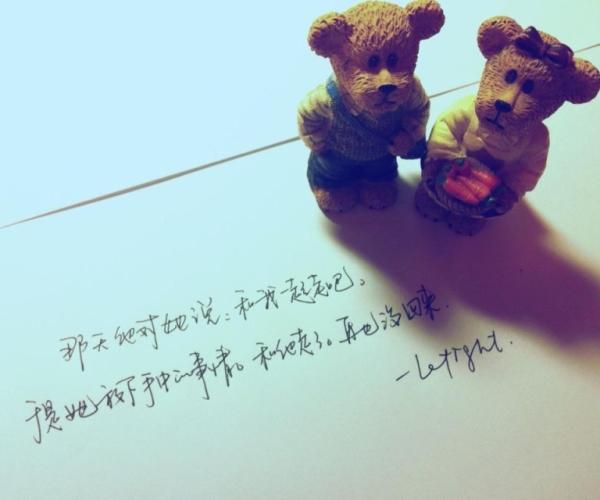 那天他对她说：和我一起走吧。
于是她放下手中的事情。和他走了。再也没回来.
-Letright.